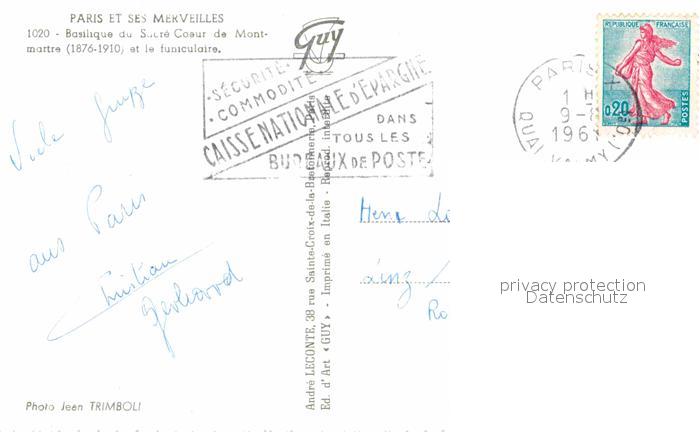 PARIS ET SES MERVEILLES
1020 - Basilique du Sacré Coeur de Mont-
martre (1876-1910) et le funiculaire.
Guy
·SÉCURITÉ·
·COMMODITÉ
CAISSE NATIONALE D'ÉPARGNE
DANS
TOUS LES
BUREAUX DE POSTE
PARIS
1 H
9-
1961
QUAI
RÉPUBLIQUE FRANÇAISE
0,20
POSTES
Viele
aus Paris
Christian
Gerhard
André LECONTE, 38 rue Sainte-Croix-de-la-Bretonnerie, Paris
Ed. d'Art «GUY» - Imprimé en Italie - Reprod. interdite
privacy protection
Datenschutz
Photo Jean TRIMBOLI